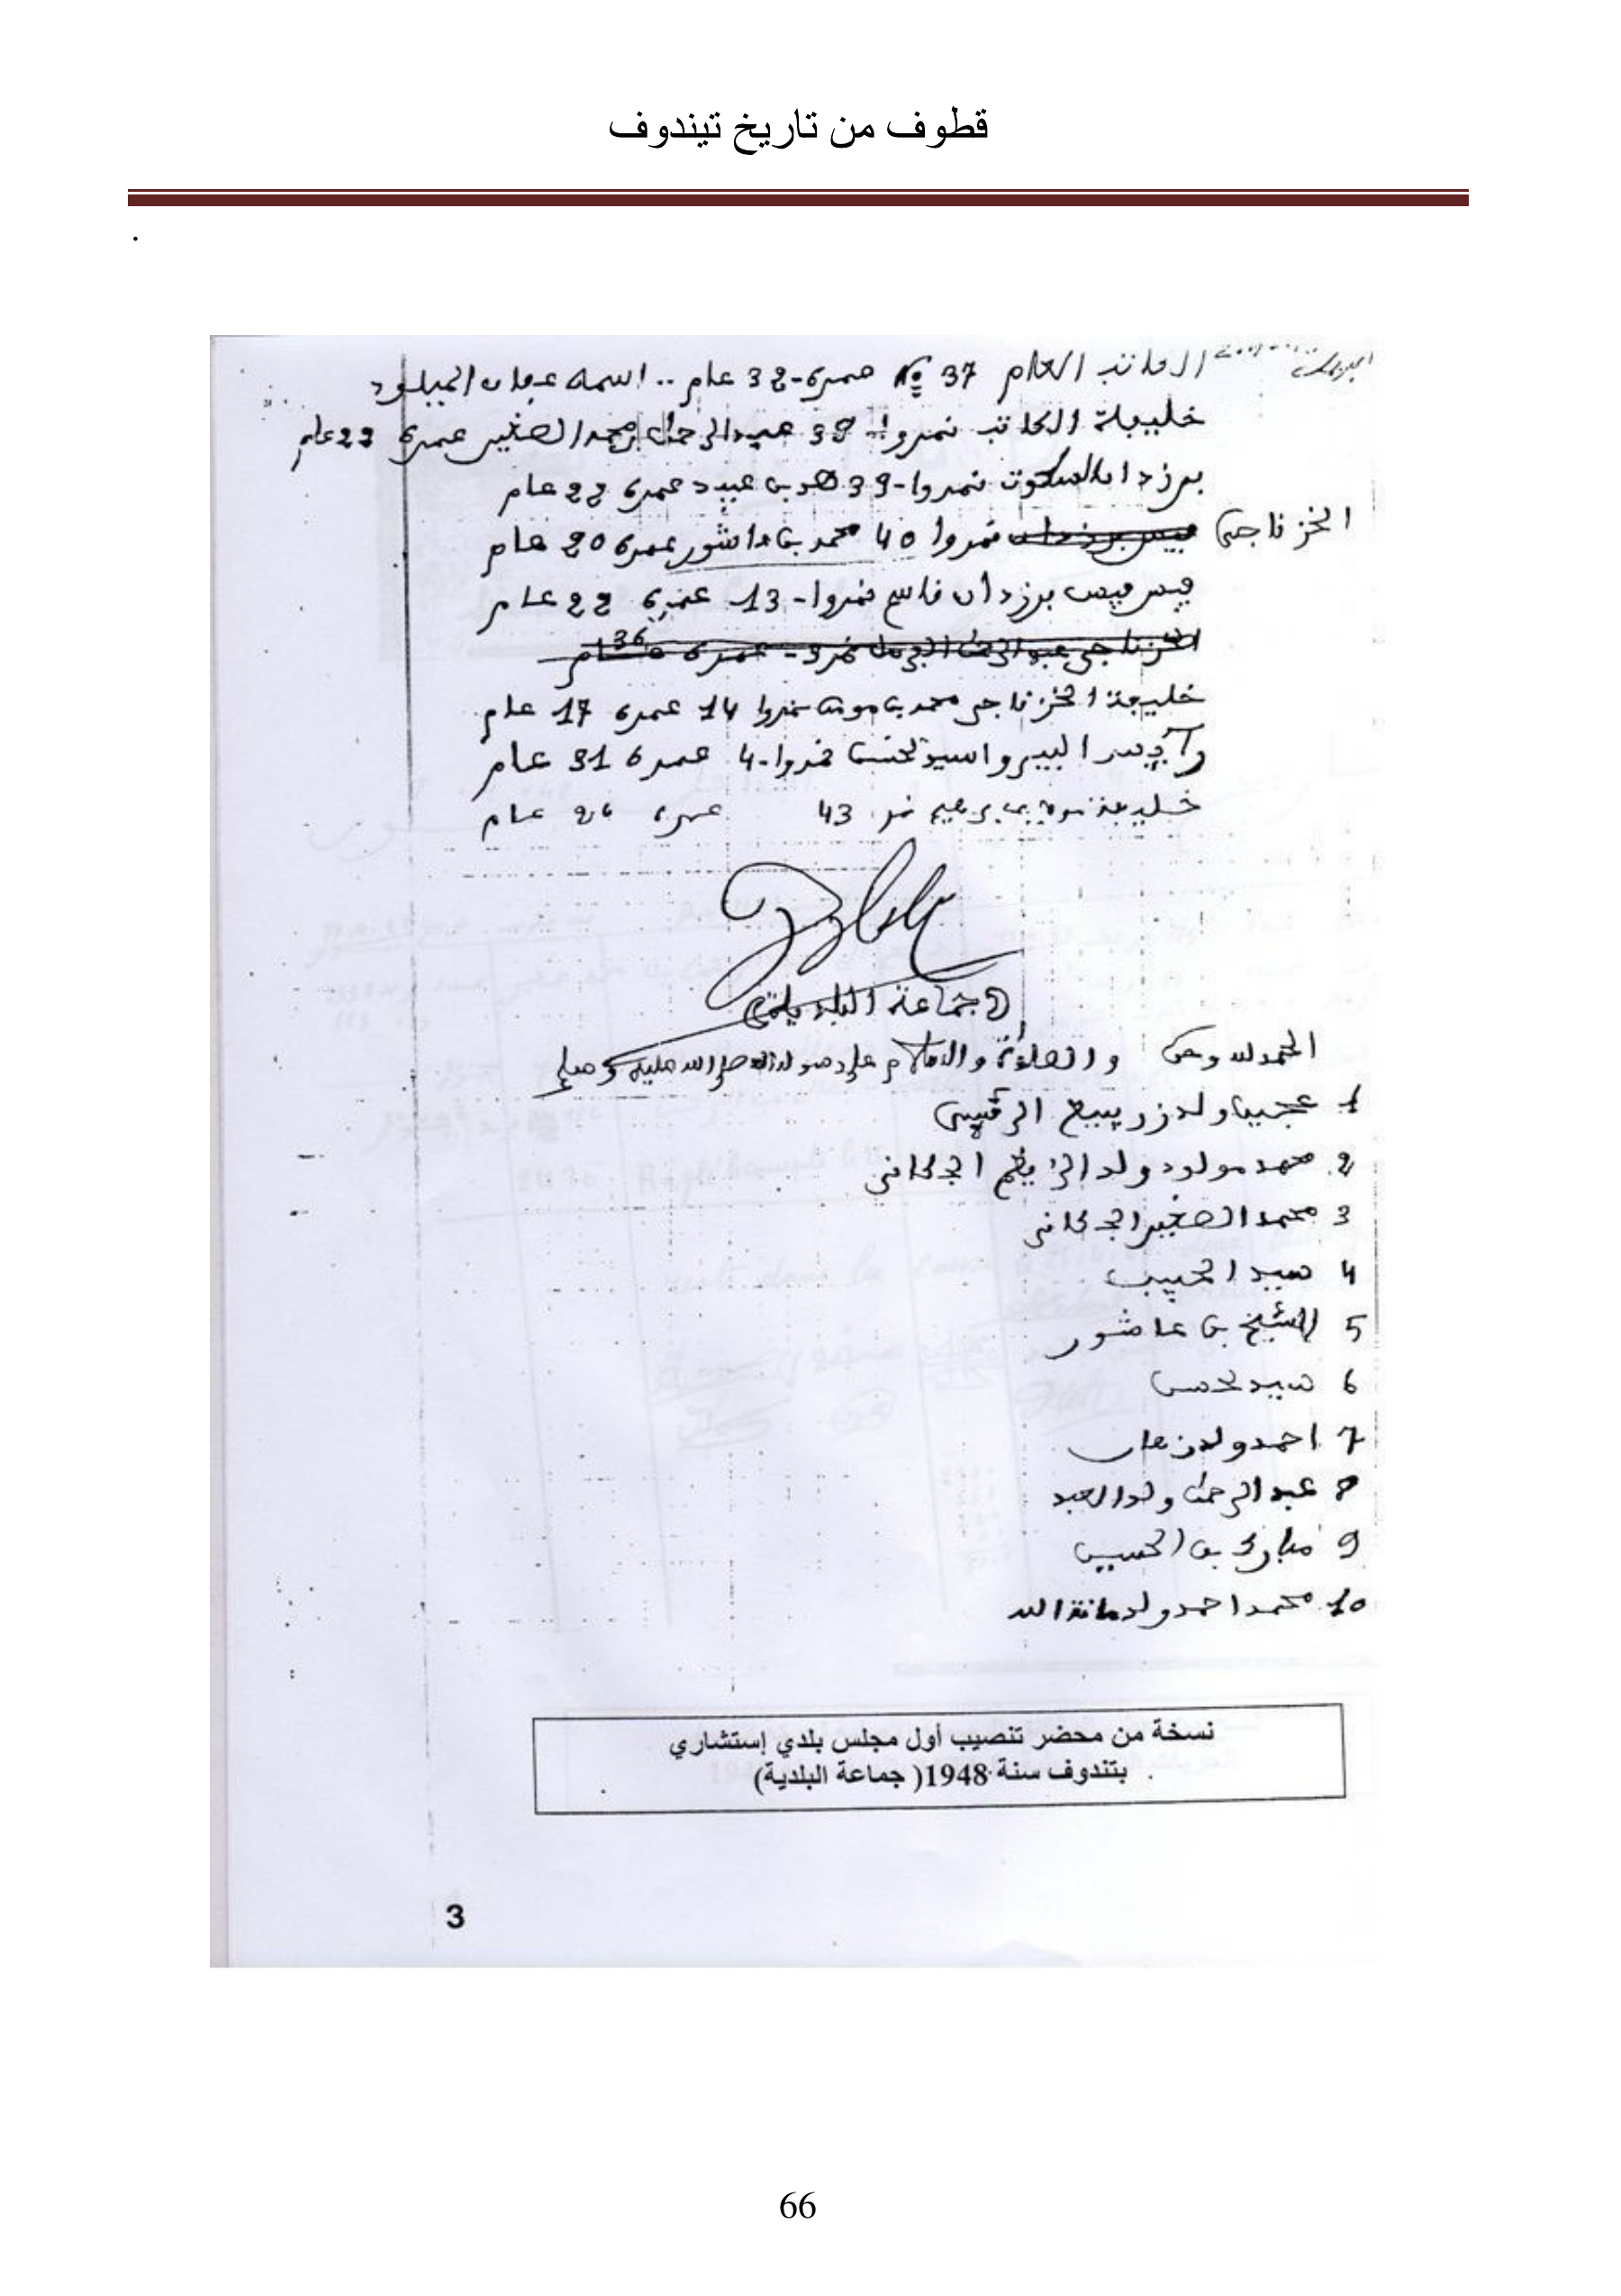 قطوف من تاريخ تيندوف
.
الكاتب العام 37 № عمره-32 عام .. اسمه المیلود
خليفة الكاتب نمروا- 38 عبد الرحمان بن محمد الصغير عمره 22 عام
نمروا-39 بن عبيد عمره 22 عام
الخزناجي نمروا 40 محمد بن عاشور عمره 20 عام
قاسم نمروا-13 عمره 22 عام
الخزناجي نمر 9- عمره 36 عام
خليفة الخزناجي محمد بن نمروا 14 عمره 17 عام
البيرو نمروا-4 عمره 31 عام
خليفة بن نمر 43 عمره عام
(جماعة البلدية)
الحمد لله وحده والصلاة والسلام على رسول الله صلى الله عليه وسلم
1 ولد الرقيبي
2 محمد مولود ولد الجكاني
3 محمد الصغير الجكاني
4 سيد الحبيب
5 الشيخ بن عاشور
6 سيد لحسن
7 احمد ولد
8 عبد الرحمان ولد العبد
9 مبارك بن الحسين
10 محمد احمد ولد مانة الله
نسخة من محضر تنصيب أول مجلس بلدي إستشاري
بتندوف سنة 1948( جماعة البلدية)
3
66